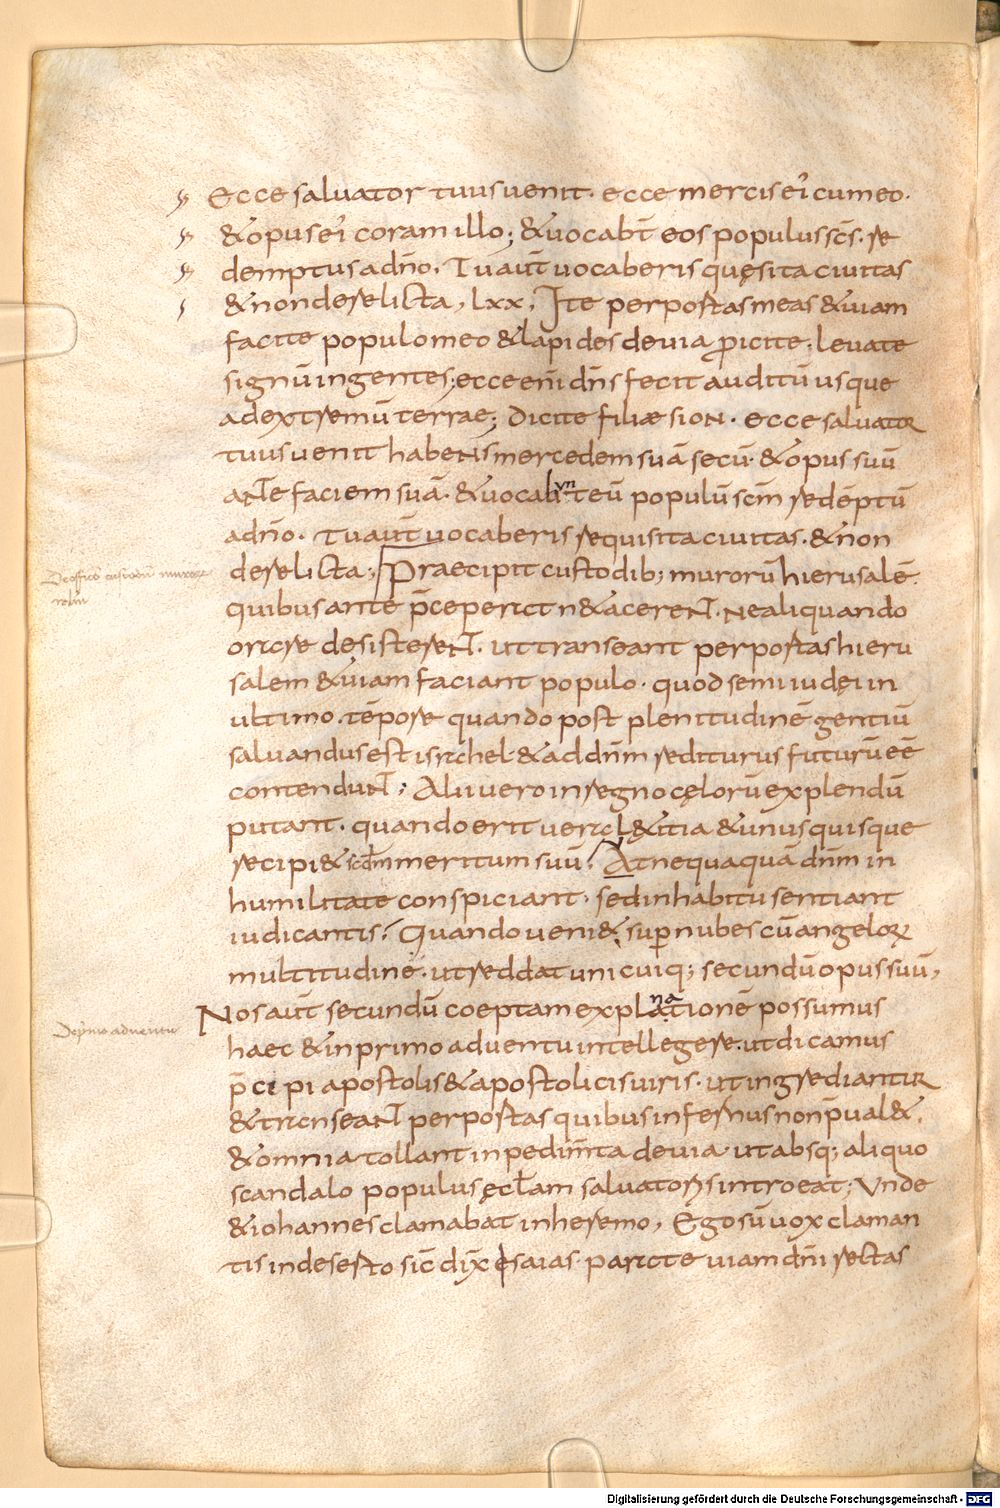 Ecce saluator tuus uenit. ecce mercis ei cum eo.
& opus ei coram illo; & uocabt̄ eos populus scs̄. re
demptus a dño. Tu aūt uocaberis quęsita ciuitas
& non derelicta, lxx, Ite per portas meas & uiam
facite populo meo & lapides de uia ꝓicite. leuate
signū in gentes; ecce enī dñs fecit auditū usque
ad extremū terrae; Dicite filiæ sion. ecce saluator
tuus uenit habens mercedem suā secū. & opus suū
ante faciem suā. & uocabunt eū populū scm̄ redēptū
a dño. Tu aūt uocaberis requisita ciuitas. & non
derelicta; Praecipit custodib; murorū hierusalē.
De officio custodum murorum
ierlm
quibus ante p̄ceperat n& acerent. ne aliquando
orare desisterent. ut transeant per portas hieru
salem & uiam faciant populo. quod semiiudęi in
ultimo tēpore quando post plenitudinē gentiū
saluandus est israhel. & ad dn̄m rediturus futurū eē
contendunt; Alii uero in regno cęlorū explendū
putant. quando erit uera l&itia & unusquisque
recipi& scdm meritum suū; At nequaquā dn̄m in
humilitate conspiciant. sed in habitu sentiant
iudicantis; Quando ueni& sup nubes cū angelorꝝ
multitudine. ut reddat unicuiq; secundū opus suū,
Nos aūt secundū coeptam explanationē possumus
De primo aduentu
haec & in primo aduentu intellegere. ut dicamus
p̄cipi apostolis & apostolicis uiris. ut ingrediantur
& transeant per portas quibus infernus non p̄ual&.
& omnia tollant inpedim̄ta de uia. ut absq; aliquo
scandalo populus ęcl̄am saluatoris introeat; Unde
& iohannes clamabat in heremo, Ego sū uox claman
tis in deserto sic̄ dix̄ esaias. parate uiam dn̄i rectas
Digitalisierung gefördert durch die Deutsche Forschungsgemeinschaft - DFG